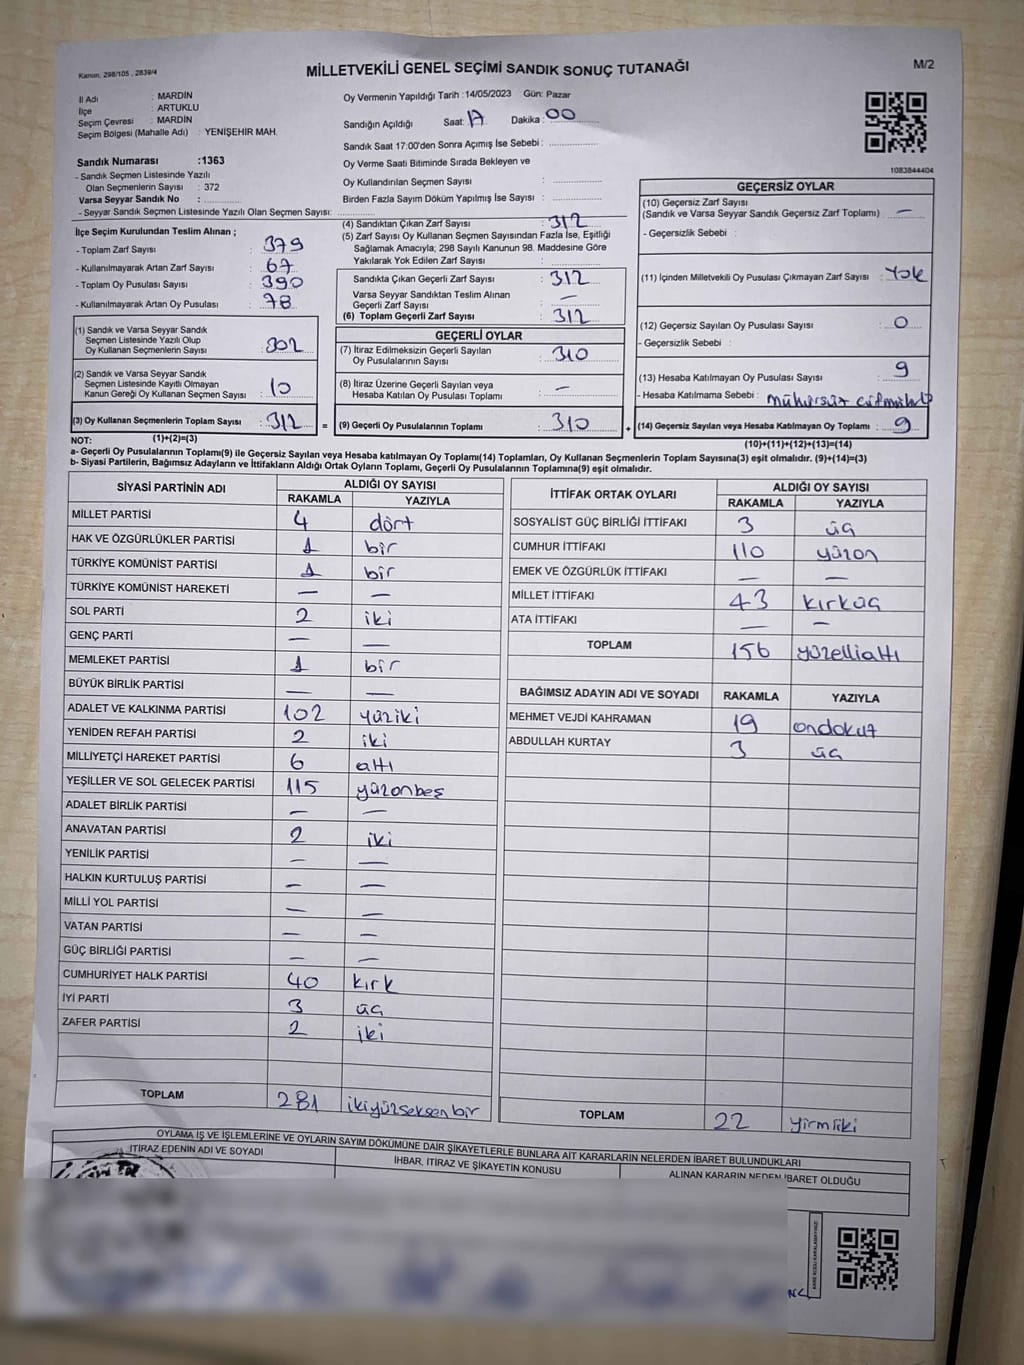 Kanun, 298/105 , 2839/4
MİLLETVEKİLİ GENEL SEÇİMİ SANDIK SONUÇ TUTANAĞI
M/2
İl Adı : MARDİN
İlçe : ARTUKLU
Seçim Çevresi : MARDİN
Seçim Bölgesi (Mahalle Adı) : YENİŞEHİR MAH.
Sandık Numarası :1363
- Sandık Seçmen Listesinde Yazılı
Olan Seçmenlerin Sayısı : 372
Varsa Seyyar Sandık No :
- Seyyar Sandık Seçmen Listesinde Yazılı Olan Seçmen Sayısı:
Oy Vermenin Yapıldığı Tarih :14/05/2023 Gün: Pazar
Sandığın Açıldığı Saat: 17 Dakika : 00
Sandık Saat 17:00'den Sonra Açımış İse Sebebi :
Oy Verme Saati Bitiminde Sırada Bekleyen ve
Oy Kullandırılan Seçmen Sayısı :
Birden Fazla Sayım Döküm Yapılmış İse Sayısı :
1083844404
İlçe Seçim Kurulundan Teslim Alınan ;
- Toplam Zarf Sayısı : 379
- Kullanılmayarak Artan Zarf Sayısı : 67
- Toplam Oy Pusulası Sayısı : 390
- Kullanılmayarak Artan Oy Pusulası : 78
(1) Sandık ve Varsa Seyyar Sandık
Seçmen Listesinde Yazılı Olup
Oy Kullanan Seçmenlerin Sayısı : 302
(2) Sandık ve Varsa Seyyar Sandık
Seçmen Listesinde Kayıtlı Olmayan
Kanun Gereği Oy Kullanan Seçmen Sayısı : 10
(3) Oy Kullanan Seçmenlerin Toplam Sayısı : 312 =
(1)+(2)=(3)
(4) Sandıktan Çıkan Zarf Sayısı : 312
(5) Zarf Sayısı Oy Kullanan Seçmen Sayısından Fazla İse, Eşitliği
Sağlamak Amacıyla; 298 Sayılı Kanunun 98. Maddesine Göre
Yakılarak Yok Edilen Zarf Sayısı :
Sandıkta Çıkan Geçerli Zarf Sayısı : 312
Varsa Seyyar Sandıktan Teslim Alınan
Geçerli Zarf Sayısı : —
(6) Toplam Geçerli Zarf Sayısı : 312
GEÇERLİ OYLAR
(7) İtiraz Edilmeksizin Geçerli Sayılan
Oy Pusulalarının Sayısı : 310
(8) İtiraz Üzerine Geçerli Sayılan veya
Hesaba Katılan Oy Pusulası Toplamı : —
(9) Geçerli Oy Pusulalarının Toplamı : 310 +
GEÇERSİZ OYLAR
(10) Geçersiz Zarf Sayısı
(Sandık ve Varsa Seyyar Sandık Geçersiz Zarf Toplamı) : —
- Geçersizlik Sebebi :
(11) İçinden Milletvekili Oy Pusulası Çıkmayan Zarf Sayısı : Yok
(12) Geçersiz Sayılan Oy Pusulası Sayısı : 0
- Geçersizlik Sebebi :
(13) Hesaba Katılmayan Oy Pusulası Sayısı : 9
- Hesaba Katılmama Sebebi : mühürsüz
(14) Geçersiz Sayılan veya Hesaba Katılmayan Oy Toplamı : 9
(10)+(11)+(12)+(13)=(14)
NOT:
a- Geçerli Oy Pusulalarının Toplamı(9) ile Geçersiz Sayılan veya Hesaba Katılmayan Oy Toplamı(14) Toplamları, Oy Kullanan Seçmenlerin Toplam Sayısına(3) eşit olmalıdır. (9)+(14)=(3)
b- Siyasi Partilerin, Bağımsız Adayların ve İttifakların Aldığı Ortak Oyların Toplamı, Geçerli Oy Pusulalarının Toplamına(9) eşit olmalıdır.
SİYASİ PARTİNİN ADI ALDIĞI OY SAYISI
RAKAMLA YAZIYLA
MİLLET PARTİSİ 4 dört
HAK VE ÖZGÜRLÜKLER PARTİSİ 1 bir
TÜRKİYE KOMÜNİST PARTİSİ 1 bir
TÜRKİYE KOMÜNİST HAREKETİ — —
SOL PARTİ 2 iki
GENÇ PARTİ — —
MEMLEKET PARTİSİ 1 bir
BÜYÜK BİRLİK PARTİSİ — —
ADALET VE KALKINMA PARTİSİ 102 yüziki
YENİDEN REFAH PARTİSİ 2 iki
MİLLİYETÇİ HAREKET PARTİSİ 6 altı
YEŞİLLER VE SOL GELECEK PARTİSİ 115 yüzonbeş
ADALET BİRLİK PARTİSİ — —
ANAVATAN PARTİSİ 2 iki
YENİLİK PARTİSİ — —
HALKIN KURTULUŞ PARTİSİ — —
MİLLİ YOL PARTİSİ — —
VATAN PARTİSİ — —
GÜÇ BİRLİĞİ PARTİSİ — —
CUMHURİYET HALK PARTİSİ 40 kırk
İYİ PARTİ 3 üç
ZAFER PARTİSİ 2 iki
TOPLAM 281 ikiyüzseksenbir
İTTİFAK ORTAK OYLARI ALDIĞI OY SAYISI
RAKAMLA YAZIYLA
SOSYALİST GÜÇ BİRLİĞİ İTTİFAKI 3 üç
CUMHUR İTTİFAKI 110 yüzon
EMEK VE ÖZGÜRLÜK İTTİFAKI — —
MİLLET İTTİFAKI 43 kırküç
ATA İTTİFAKI — —
TOPLAM 156 yüzelliatı
BAĞIMSIZ ADAYIN ADI VE SOYADI RAKAMLA YAZIYLA
MEHMET VEJDİ KAHRAMAN 19 ondokuz
ABDULLAH KURTAY 3 üç
TOPLAM 22 yirmiiki
OYLAMA İŞ VE İŞLEMLERİNE VE OYLARIN SAYIM DÖKÜMÜNE DAİR ŞİKAYETLERLE BUNLARA AİT KARARLARIN NELERDEN İBARET BULUNDUKLARI
İTİRAZ EDENİN ADI VE SOYADI İHBAR, İTİRAZ VE ŞİKAYETİN KONUSU ALINAN KARARIN NEDEN İBARET OLDUĞU